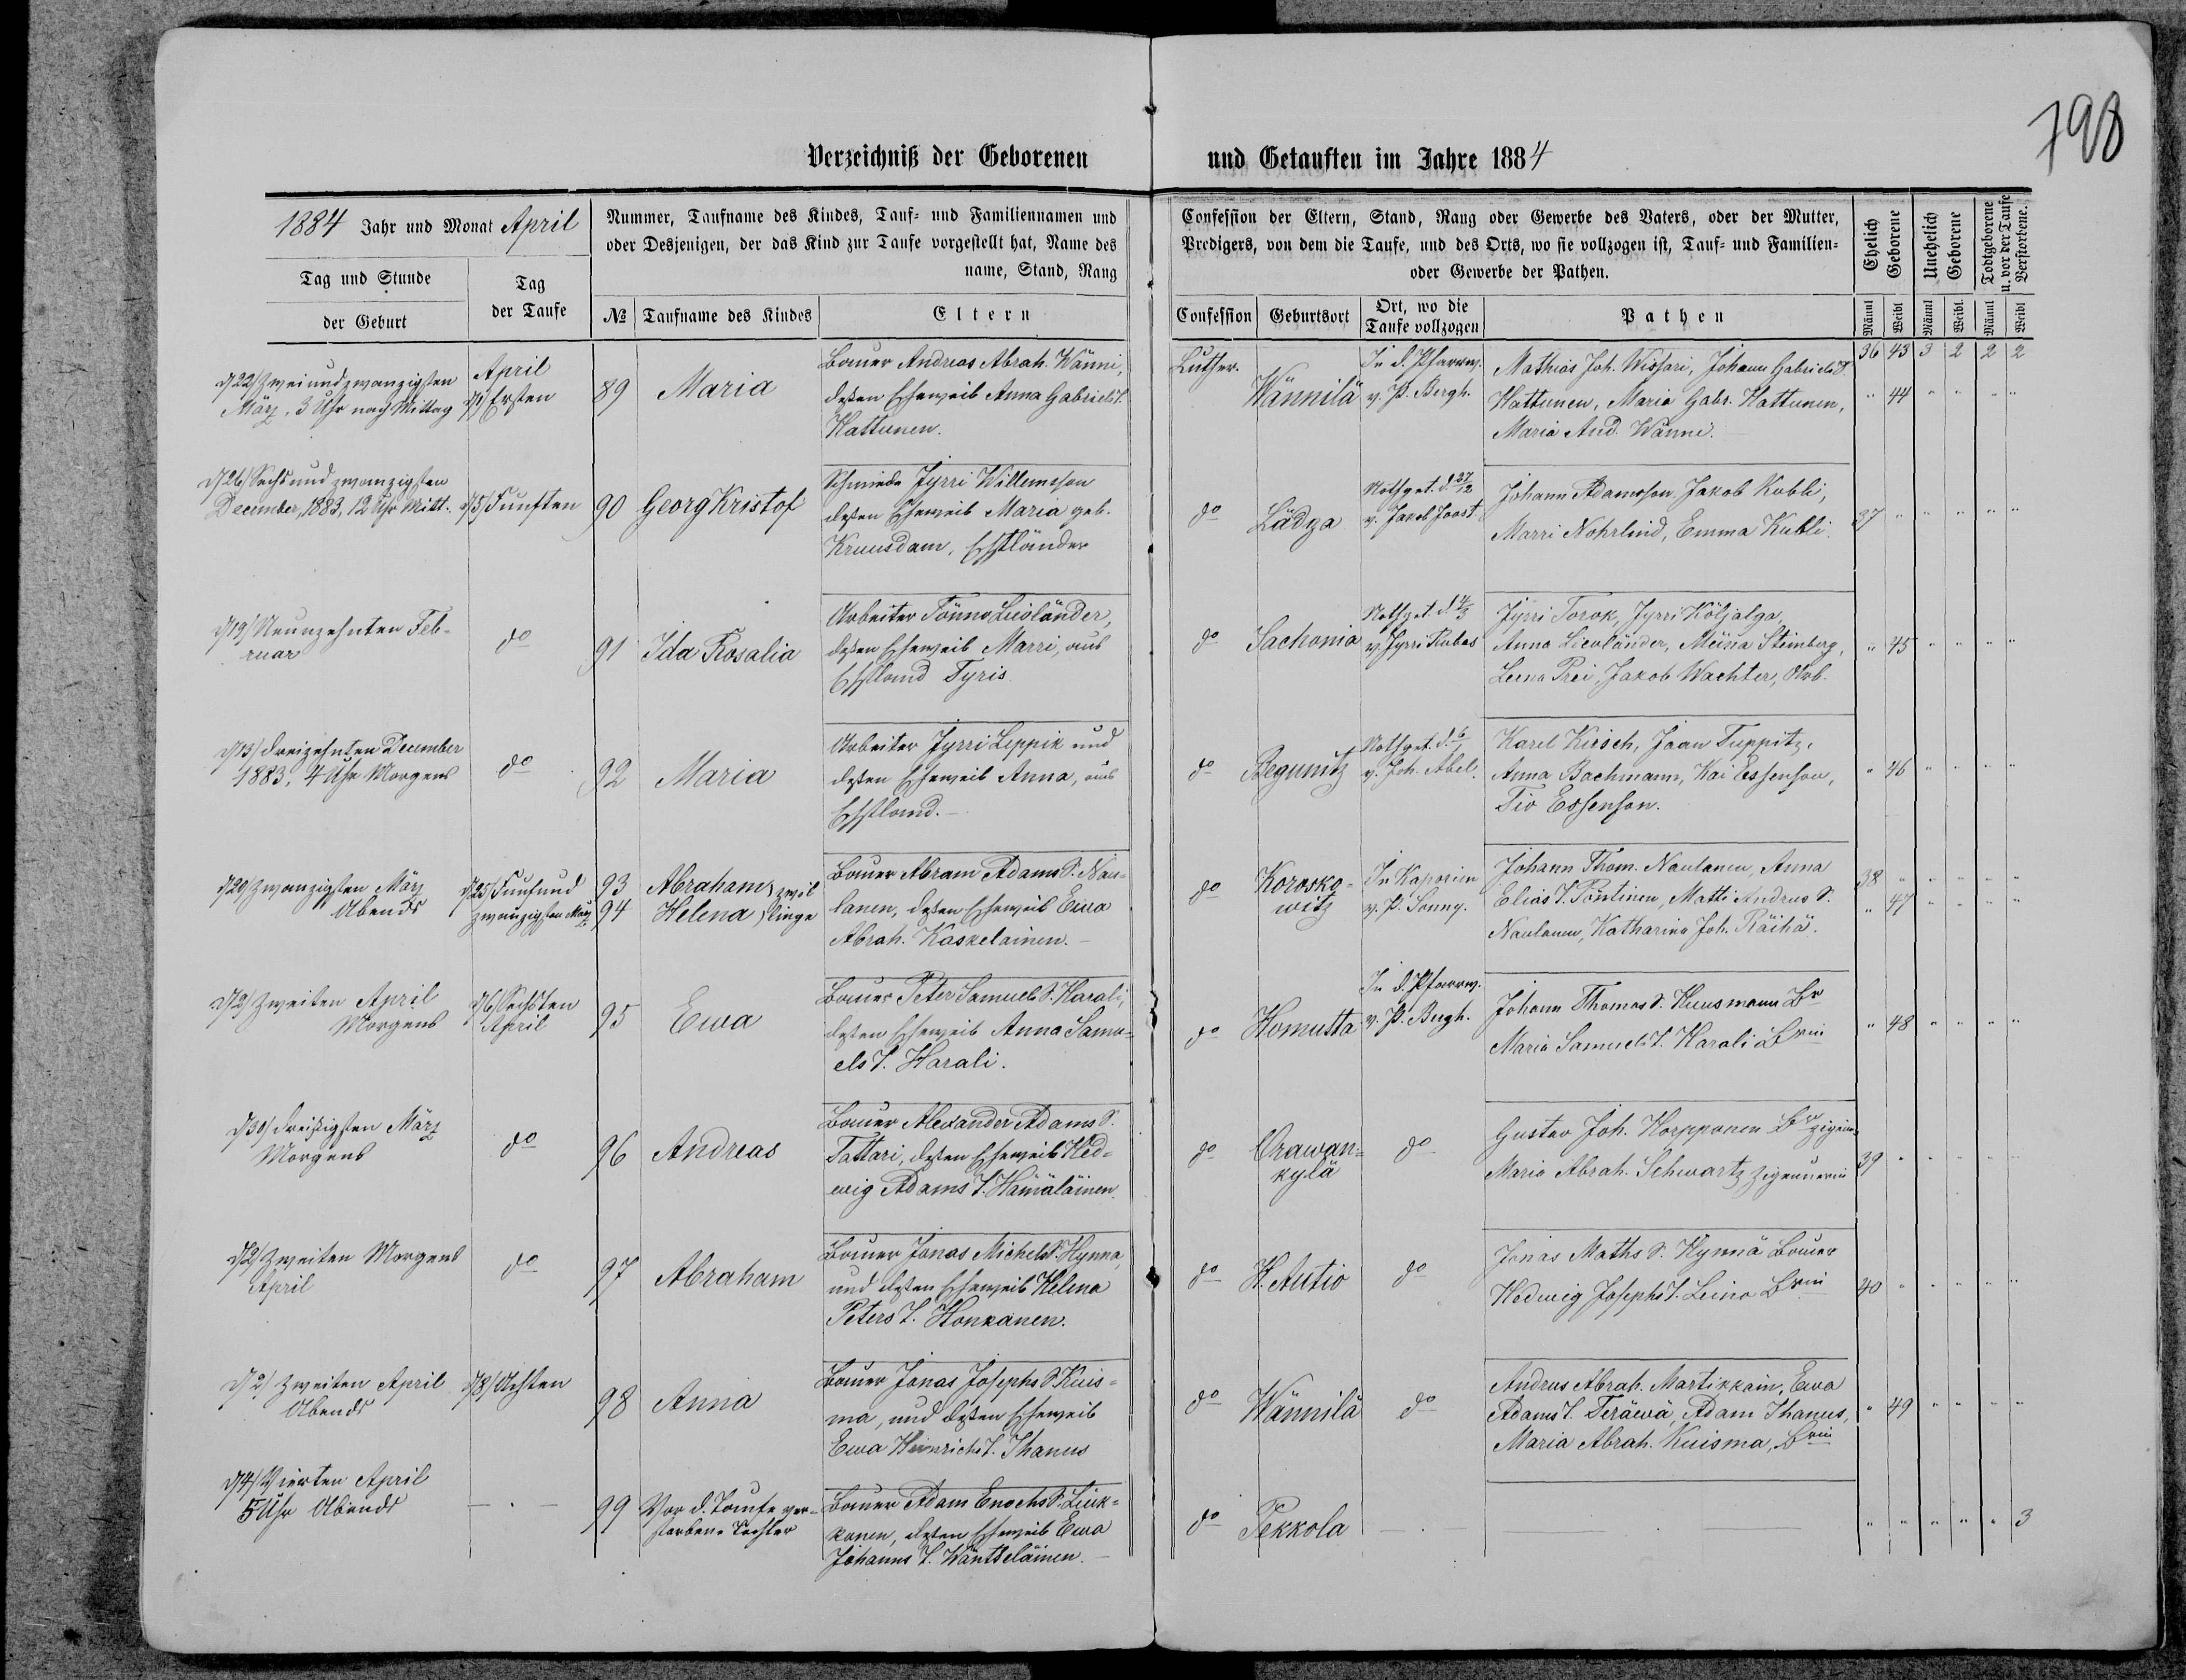 798
Verzeichniß der Geborenen und Getauften im Jahre 1884
1884 Jahr und Monat April
Tag und Stunde
der Geburt
Tag
der Taufe
Nummer, Taufname des Kindes, Tauf- und Familiennamen und
oder Desjenigen, der das Kind zur Taufe vorgestellt hat, Name des
name, Stand, Rang
№ Taufname des Kindes Eltern
Confession der Eltern, Stand, Rang oder Gewerbe des Vaters, oder der Mutter,
Predigers, von dem die Taufe, und des Orts, wo sie vollzogen ist, Tauf- und Familien-
oder Gewerbe der Pathen.
Confession Geburtsort
Ort, wo die
Taufe vollzogen
Pathen
Ehelich
Geborene
Unehelich
Geborene
Todtgeborene
u. vor der Taufe
Verstorbene.
Männl Weibl Männl Weibl. Männl Weibl
36 43 3 2 2 2
d/22/ Zweiundzwanzigsten
März, 3 Uhr nach Mittag
April
d/1/ Ersten
89 Maria
Bauer Andreas Abrah. Wänni,
deßen Eheweib Anna Gabriels T.
Hattunen.
Luther.
Wännilä
In d. Pfarrw.
v. P. Bergh.
Mathias Joh. Wissari, Johann Gabriels S.
Hattunen, Maria Gabr. Hattunen,
Maria And. Wänni.
" 44 " " " "
d/26/ Sechsundzwanzigsten
December, 1883, 12 Uhr Mitt.
d/5/ Fünften
90 Georg Kristof
Schmiede Jyrri Willemson
deßen Eheweib Maria geb.
Kruusdam, Ehstländer
do Lädga
Nothget. d. 27/12
v. Jakob Joost
Johann Adamson, Jakob Kubli,
Marri Nohrlind, Emma Kubli.
37 " " " " "
d/19/ Neunzehnten Feb-
ruar
do
91 Ida Rosalia
Arbeiter Tönno Liwländer,
deßen Eheweib Marri, aus
Ehstland Tyris
do Sachonia
Nothget. d. 4/3
v. Jyrri Rubas
Jyrri Torok, Jyrri Köljalga,
Anna Liewländer, Miina Steinberg,
Leena Prei, Jakob Wachter, Arb.
" 45 " " " "
d/13/ Dreizehnten December
1883, 4 Uhr Morgens
do
92 Maria
Arbeiter Jyrri Leppik und
deßen Eheweib Anna, aus
Ehstland.
do Begunitz
Nothget. d. 6/1
v. Joh. Abel.
Karel Kirsch, Jaan Tuppitz,
Anna Bachmann, Kai Essenson,
Tio Essenson.
" 46 " " " "
d/20/ Zwanzigsten März
Abends
d/25/ Fünfund
zwanzigsten März
93 Abraham } Zwil
94 Helena } linge
Bauer Abram Adams S. Nau-
lanen, deßen Eheweib Ewa
Abrah. Kaskelainen.
do Korosko-
witz
In Kaporien
v. P. Sonny.
Johann Thom. Naulanen, Anna
Elias T. Pöntinen, Matti Andrus S.
Naulanen, Katharina Joh. Räihä.
38 " " " " "
" 47 " " " "
d/2/ Zweiten April
Morgens
d/6/ Sechsten
April
95 Ewa
Bauer Peter Samuels S. Harali,
deßen Eheweib Anna Samu-
els T. Harali.
do Homutta
In d. Pfarrw.
v. P. Bergh.
Johann Thomas S. Kuusmann Br
Maria Samuels T. Harali Brin
" 48 " " " "
d/30/ Dreißigsten März
Morgens
do
96 Andreas
Bauer Alexander Adams S.
Tattari, deßen Eheweib Hed-
wig Adams T. Hämäläinen
do Orawan-
kylä
do
Gustav Joh. Korpponen Br
Maria Abrah. Schwartz Zigeunerin
39 " " " " "
d/2/ Zweiten Morgens
April
do
97 Abraham
Bauer Jonas Michels S. Hynna,
und deßen Eheweib Helena
Peters T. Honkanen.
do H. Autio do
Jonas Maths S. Hynnä Bauer
Hedwig Josephs T. Leino Brin
40 " " " " "
d/2/ Zweiten April
Abends
d/8/ Achten
98 Anna
Bauer Jonas Josephs S. Kuis-
ma, und deßen Eheweib
Ewa Heinrichs T. Ihanus
do Wännilä do
Andrus Abrah. Martikkain, Ewa
Adams T. Teräwä, Adam Ihanus,
Maria Abrah. Kuisma, Brin
" 49 " " " "
d/4/ Vierten April
5 Uhr Abends
— . —
99 Vor d. Taufe ver-
storbene Tochter
Bauer Adam Enochs S. Liuk-
konen, deßen Eheweib Ewa
Johanns T. Wänttläinen.
do Pekkola
" " " " " 3